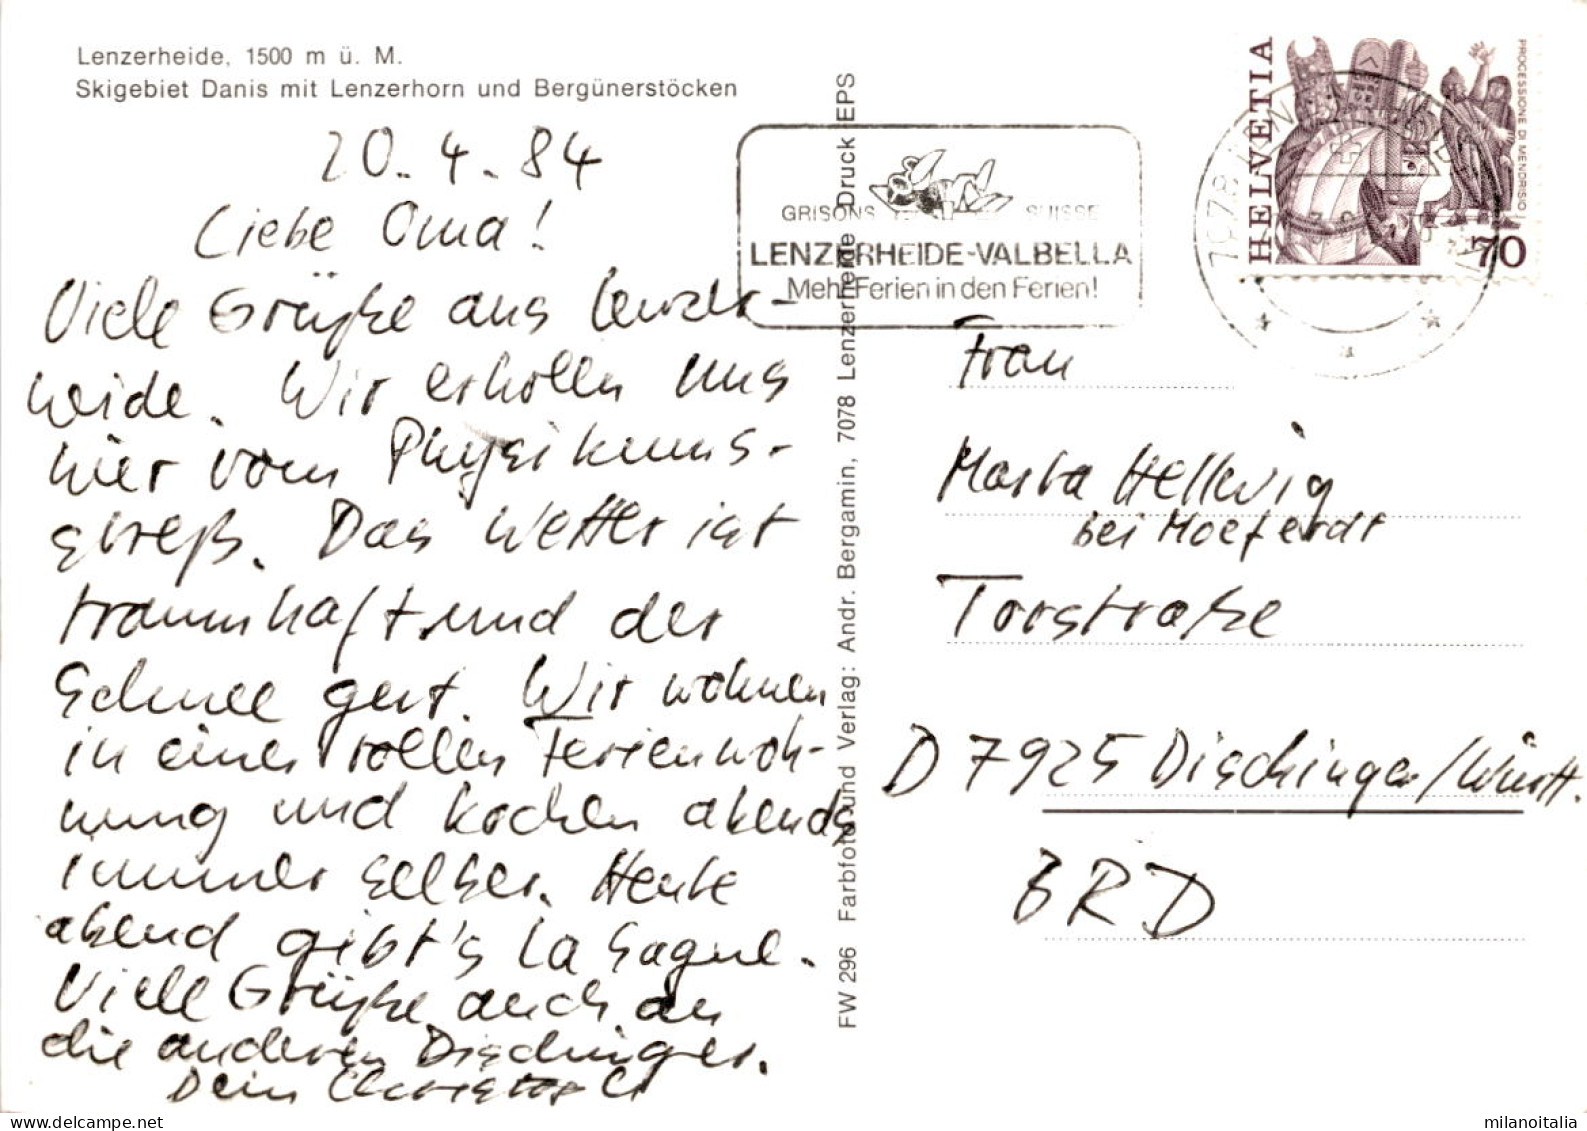 Lenzerheide, 1500 m ü. M.
Skigebiet Danis mit Lenzerhorn und Bergünerstöcken
20. 4. 84
Liebe Oma!
Viele Grüße aus Lenzer-
heide. Wir erholen uns
hier vom Physikums-
streß. Das Wetter ist
traumhaft und der
Schnee gut. Wir wohnen
in einer tollen Ferienwoh-
nung und kochen abends
immer selber. Heute
abend gibt's La Sagne.
Viele Grüße auch an
die anderen Dischinger.
Dein Christoph
FW 296 Farbfoto und Verlag: Andr. Bergamin, 7078 Lenzerheide Druck EPS
GRISONS SUISSE
LENZERHEIDE-VALBELLA
Mehr Ferien in den Ferien!
HELVETIA
PROCESSIONE DI MENDRISIO
70
7078
Frau
Marta Hellwig
bei Moeferdt
Torstraße
D 7925 Dischingen/Württ.
BRD
milanoitalia